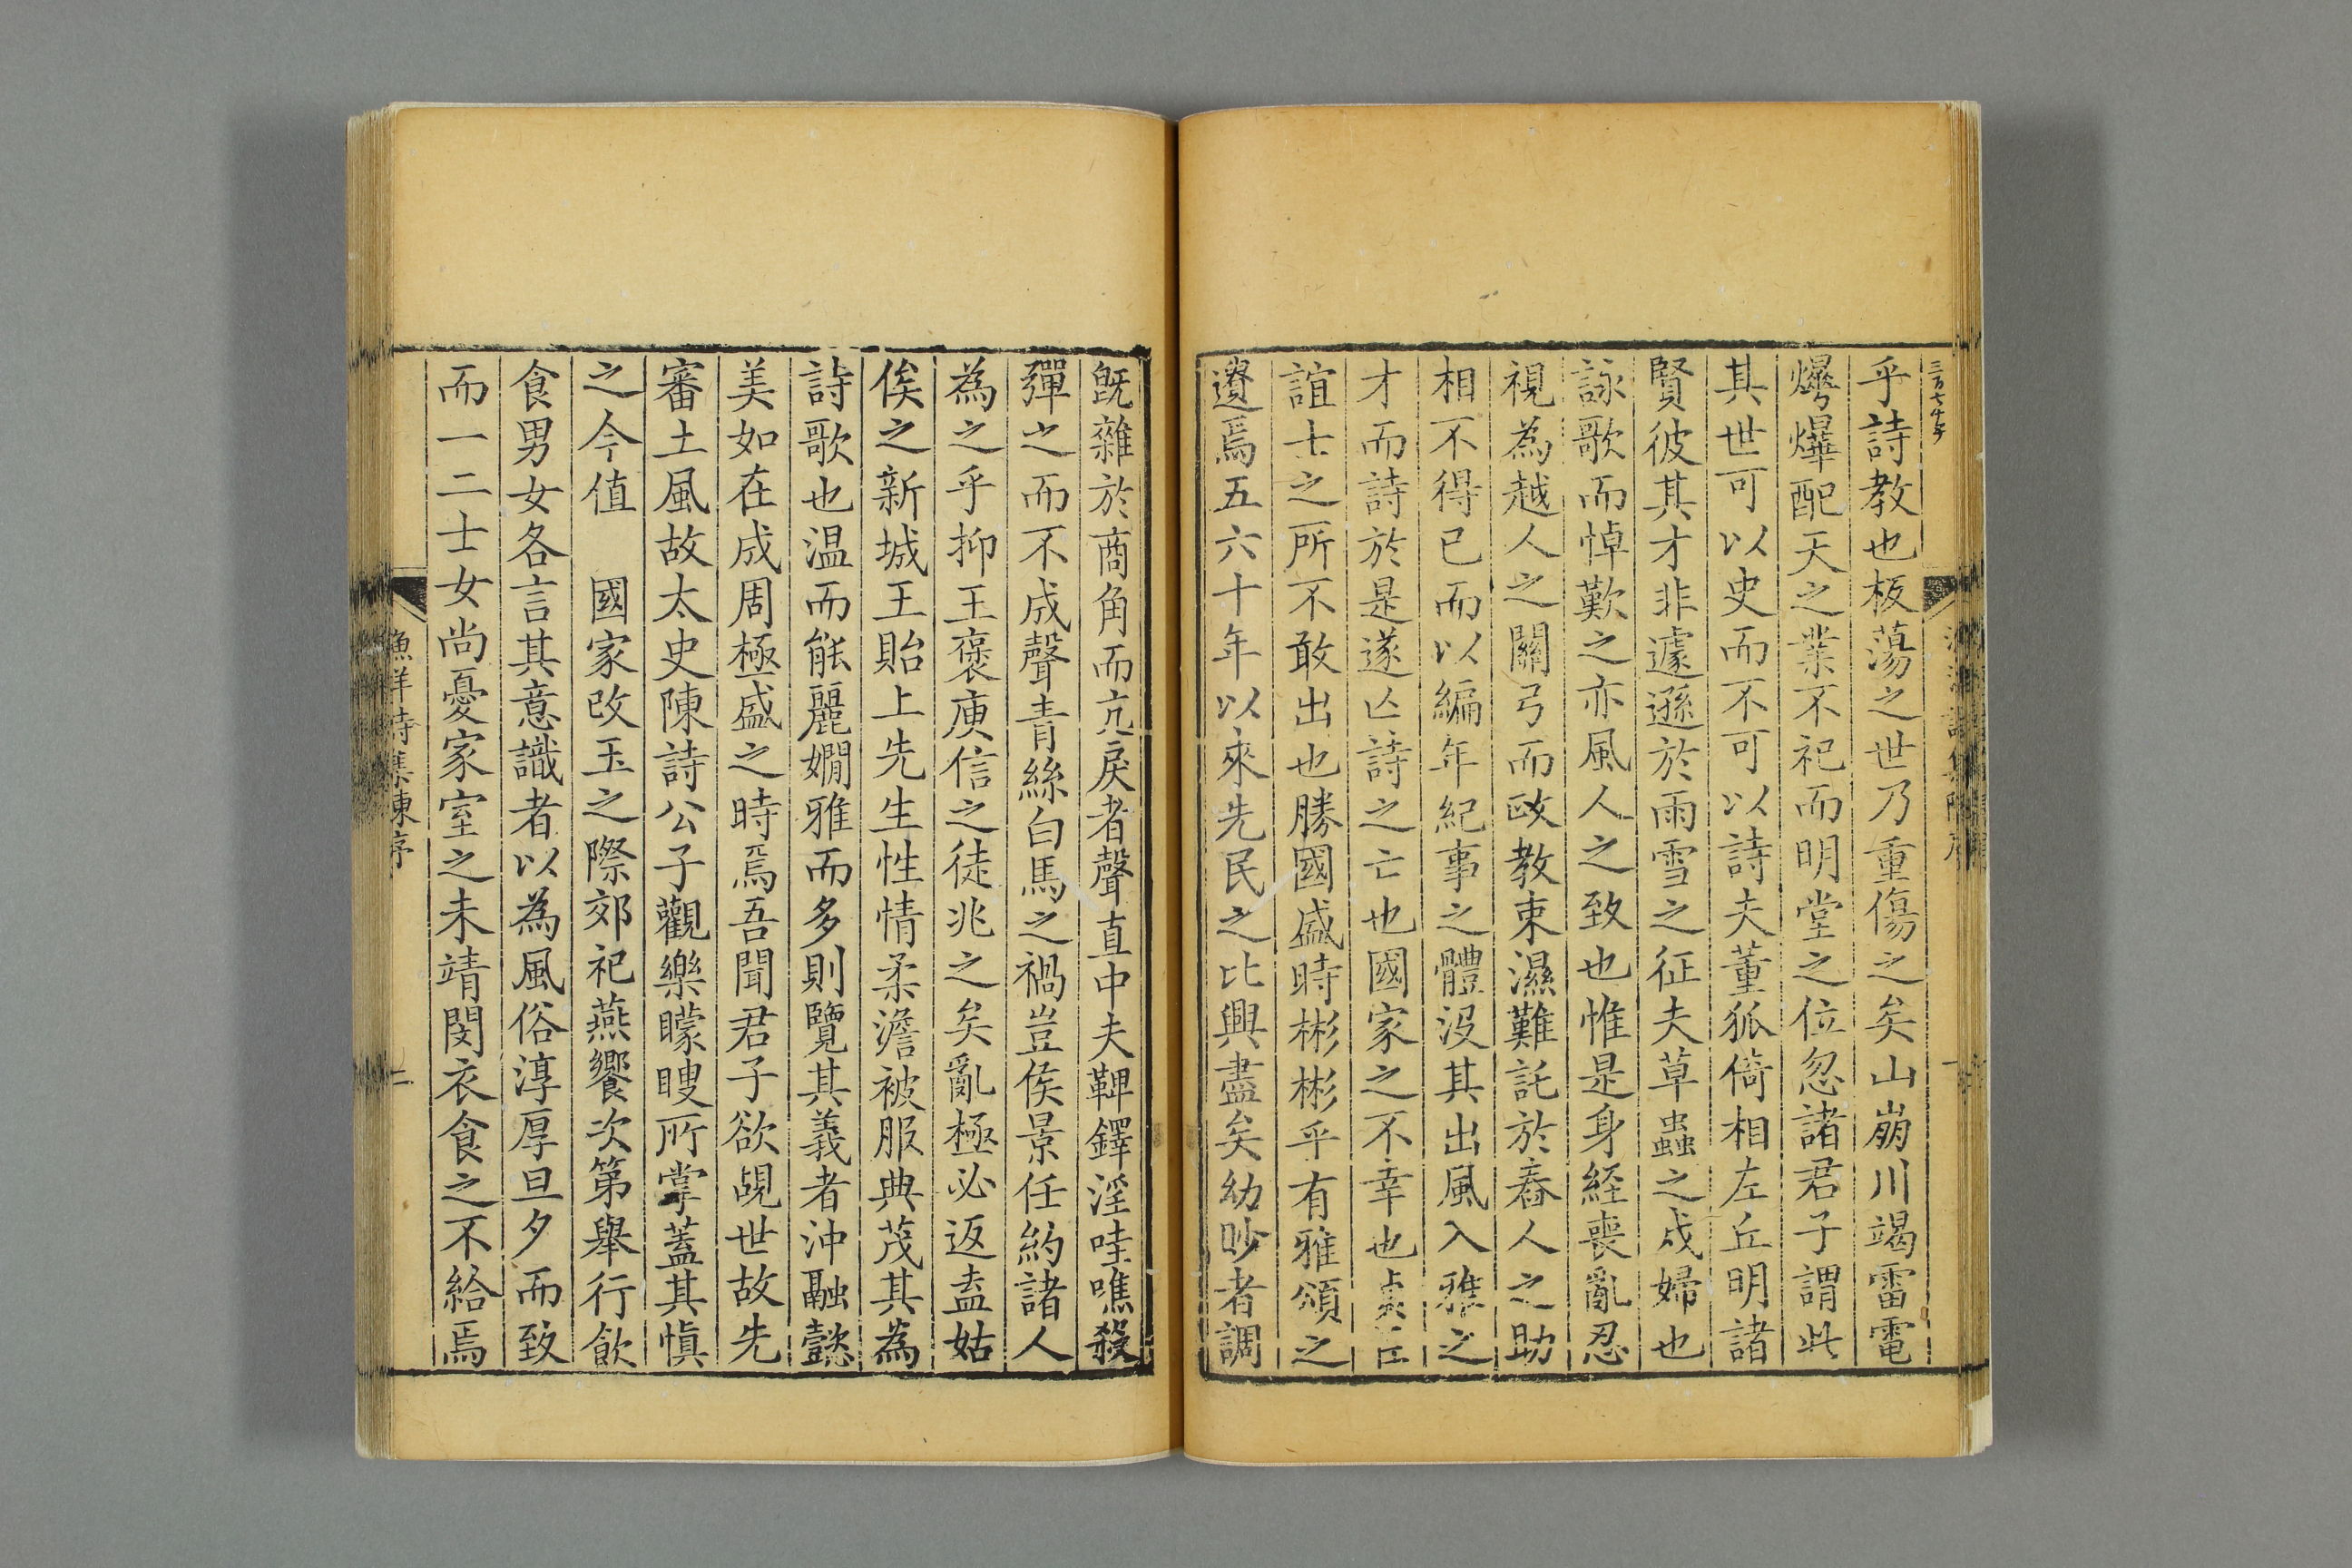 乎詩教也板蕩之世乃重傷之矣山崩川竭雷電
爗爗配天之業不祀而明堂之位忽諸君子謂此
其世可以史而不可以詩夫董狐倚相左丘明諸
賢彼其才非遽遜於雨雪之征夫草蟲之戍婦也
詠歌而悼歎之亦風人之致也惟是身經喪亂忍
視為越人之關弓而政教束濕難託於舂人之助
相不得已而以編年紀事之體没其出風入雅之
才而詩於是遂亡詩之亡也國家之不幸也
誼士之所不敢出也勝國盛時彬彬乎有雅頌之
遺焉五六十年以來先民之比興盡矣幼眇者調
既雜於商角而亢戾者聲直中夫鞞鐸淫哇噍殺
彈之而不成聲青絲白馬之禍豈侯景任約諸人
為之乎抑王褒庾信之徒兆之矣亂極必返盍姑
俟之新城王貽上先生性情柔澹被服典茂其為
詩歌也温而能麗嫺雅而多則覽其義者沖融懿
美如在成周極盛之時焉吾聞君子欲覘世故先
審土風故太史陳詩公子觀樂矇瞍所掌蓋其慎
之今值　國家改玉之際郊祀燕饗次第舉行飲
食男女各言其意識者以為風俗淳厚旦夕而致
而一二士女尚憂家室之未靖閔衣食之不給焉
漁洋詩集陳序
二